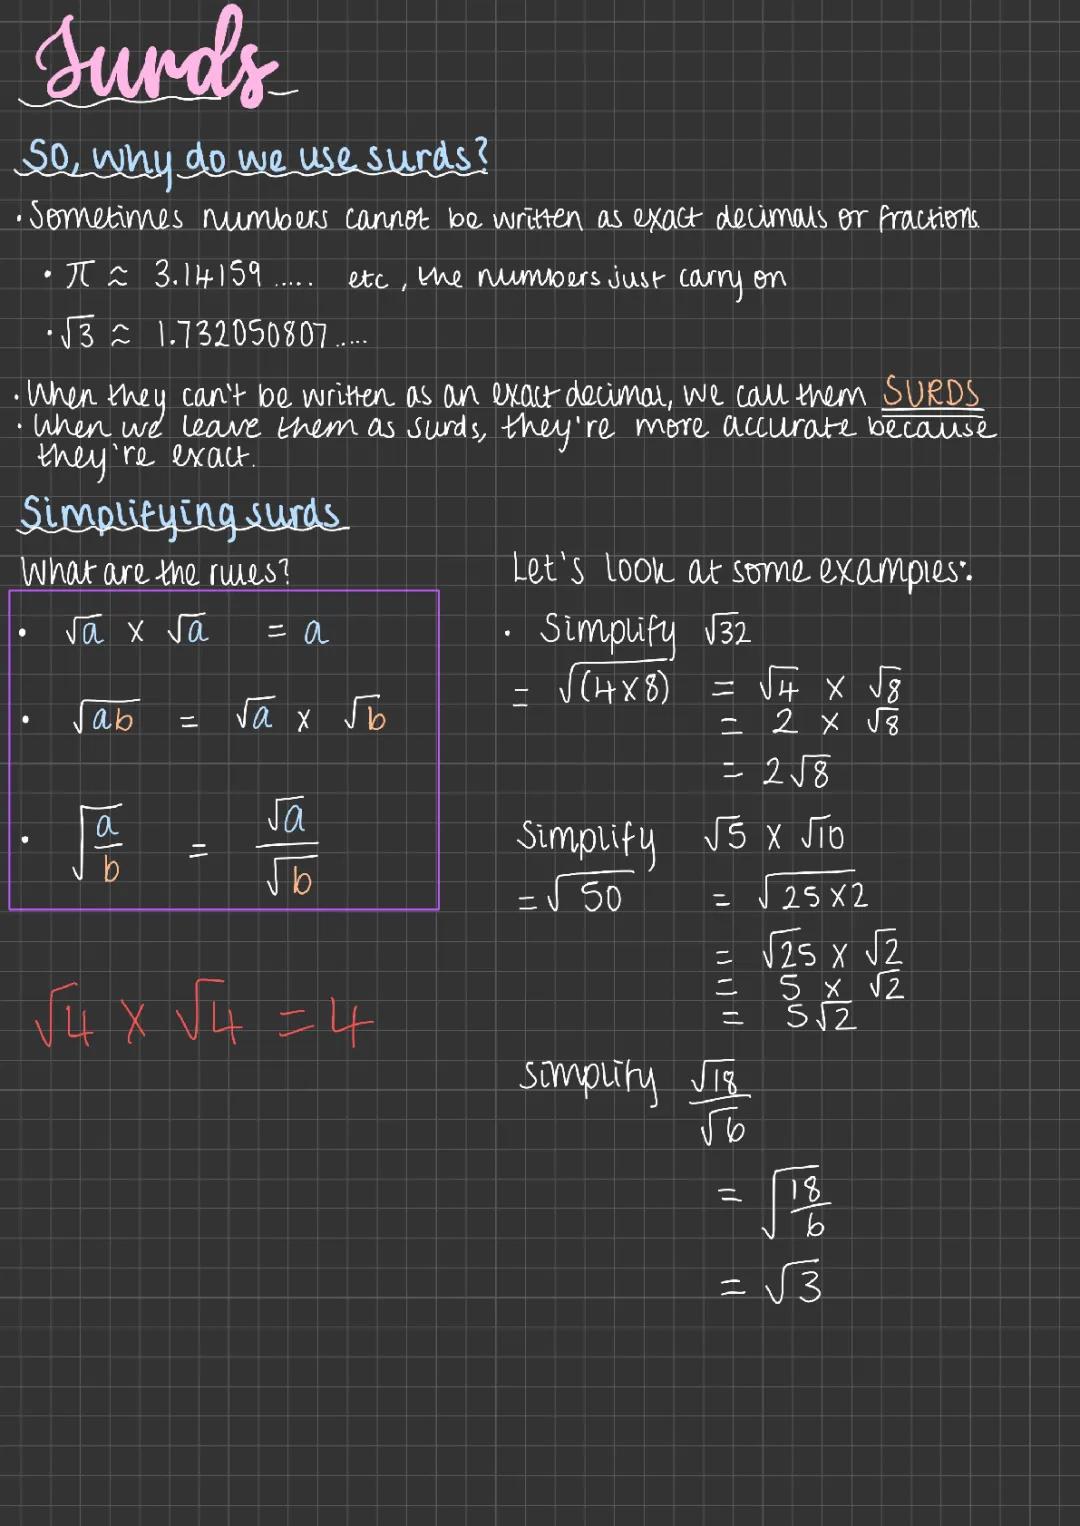 Surds
So, why do we use surds?
· Sometimes numbers cannot be written as exact decimals or fractions.
· π ≈ 3.14159 ..... etc, the numbers just carry on
· √3 ≈ 1.732050807.....
· When they can't be written as an exact decimal, we call them SURDS
· When we leave them as surds, they're more accurate because
they're exact.
Simplifying surds
What are the rules?
· √a × √a = a
· √ab = √a × √b
· √(a/b) = √a/√b
√4 × √4 = 4
Let's look at some examples:
· Simplify √32
= √(4×8) = √4 × √8
= 2 × √8
= 2√8
Simplify √5 × √10
= √50 = √25×2
= √25 × √2
= 5 × √2
= 5√2
Simplify √18/√6
= √(18/6)
= √3